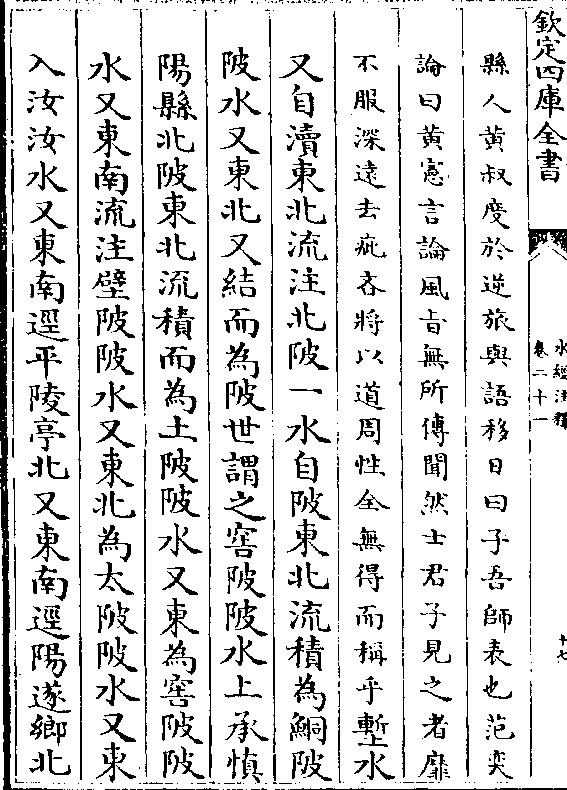 欽定四庫全書
水經注釋
卷二十一
十七
縣人黄叔度於逆旅與語移日曰子吾師表也范奕
論曰黄憲言論風㫖無所傳聞然士君子見之者靡
不服深遠去疵吝將以道周性全無得而稱乎壍水
又自瀆東北流注北陂一水自陂東北流積為鮦陂
陂水又東北又結而為陂世謂之窖陂陂水上承慎
陽縣北陂東北流積而為土陂陂水又東為窖陂陂
水又東南流注壁陂陂水又東北為太陂陂水又東
入汝汝水又東南逕平陵亭北又東南逕陽遂鄉北